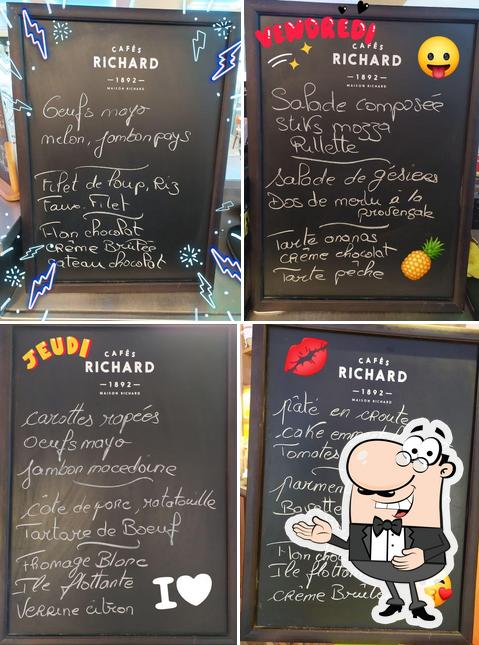 CAFÉS
RICHARD
1892
MAISON RICHARD
Oeufs mayo
melon, jambon pays
Filet de loup, Riz
Faux. Filet
Flan chocolat
CRÈME Brûlée
gateau chocolat
VENDREDI
CAFÉS
RICHARD
1892
MAISON RICHARD
Salade composée
stiks mozza
Rillette
Salade de gésiers
Dos de morlu à la
provençale
Tarte ananas
CRÈME chocolat
Tarte pêche
JEUDI
CAFÉS
RICHARD
1892
MAISON RICHARD
carottes rapées
Oeufs mayo
Jambon macedoine
côte de porc, ratatouille
Tartare de Boeuf
Fromage Blanc
Ile flottante
VERRINE citron
I
CAFÉS
RICHARD
1892
MAISON RICHARD
pâté en croute
cake
Tomates
parmen
Bavette
Flan cho
Ile flotta
CRÈME Brulé